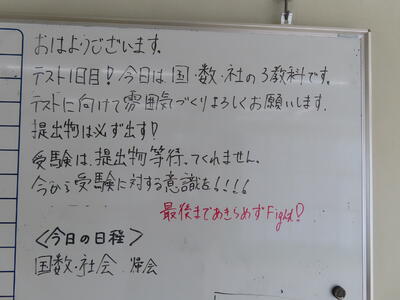 おはようございます。
テスト1日目！今日は国・数・社の3教科です。
テストに向けて雰囲気づくりよろしくお願いします。
提出物は必ず出す！
受験は、提出物等待ってくれません。
今から受験に対する意識を！！！！
最後まであきらめずFight！
＜今日の日程＞
国数・社会 帰会